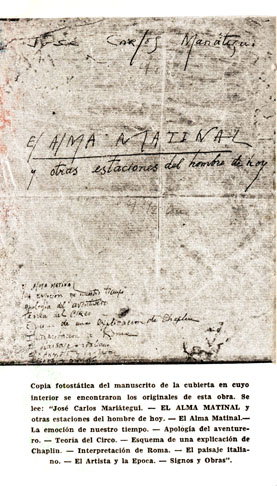 José Carlos Mariátegui.
El ALMA MATINAL
y otras estaciones del hombre de hoy
El ALMA MATINAL
La emoción de nuestro tiempo
Apología del aventurero
Teoría del Circo
Esquema de una explicación de Chaplin
Interpretación de Roma
Copia fotostática del manuscrito de la cubierta en cuyo
interior se encontraron los originales de esta obra. Se
lee: "José Carlos Mariátegui. — EL ALMA MATINAL y
otras estaciones del hombre de hoy. — El Alma Matinal.—
La emoción de nuestro tiempo. — Apología del aventure-
ro. — Teoría del Circo. — Esquema de una explicación de
Chaplin. — Interpretación de Roma. — El paisaje italia-
no. — El Artista y la Epoca. — Signos y Obras".